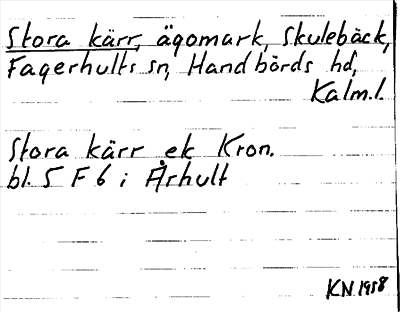 Stora kärr, ägomark, Skulebäck,
Fagerhults sn, Handbörds hd,
Kalm.l.
Stora kärr ek Kron.
bl. 5 F 6 i Århult
KN 1958